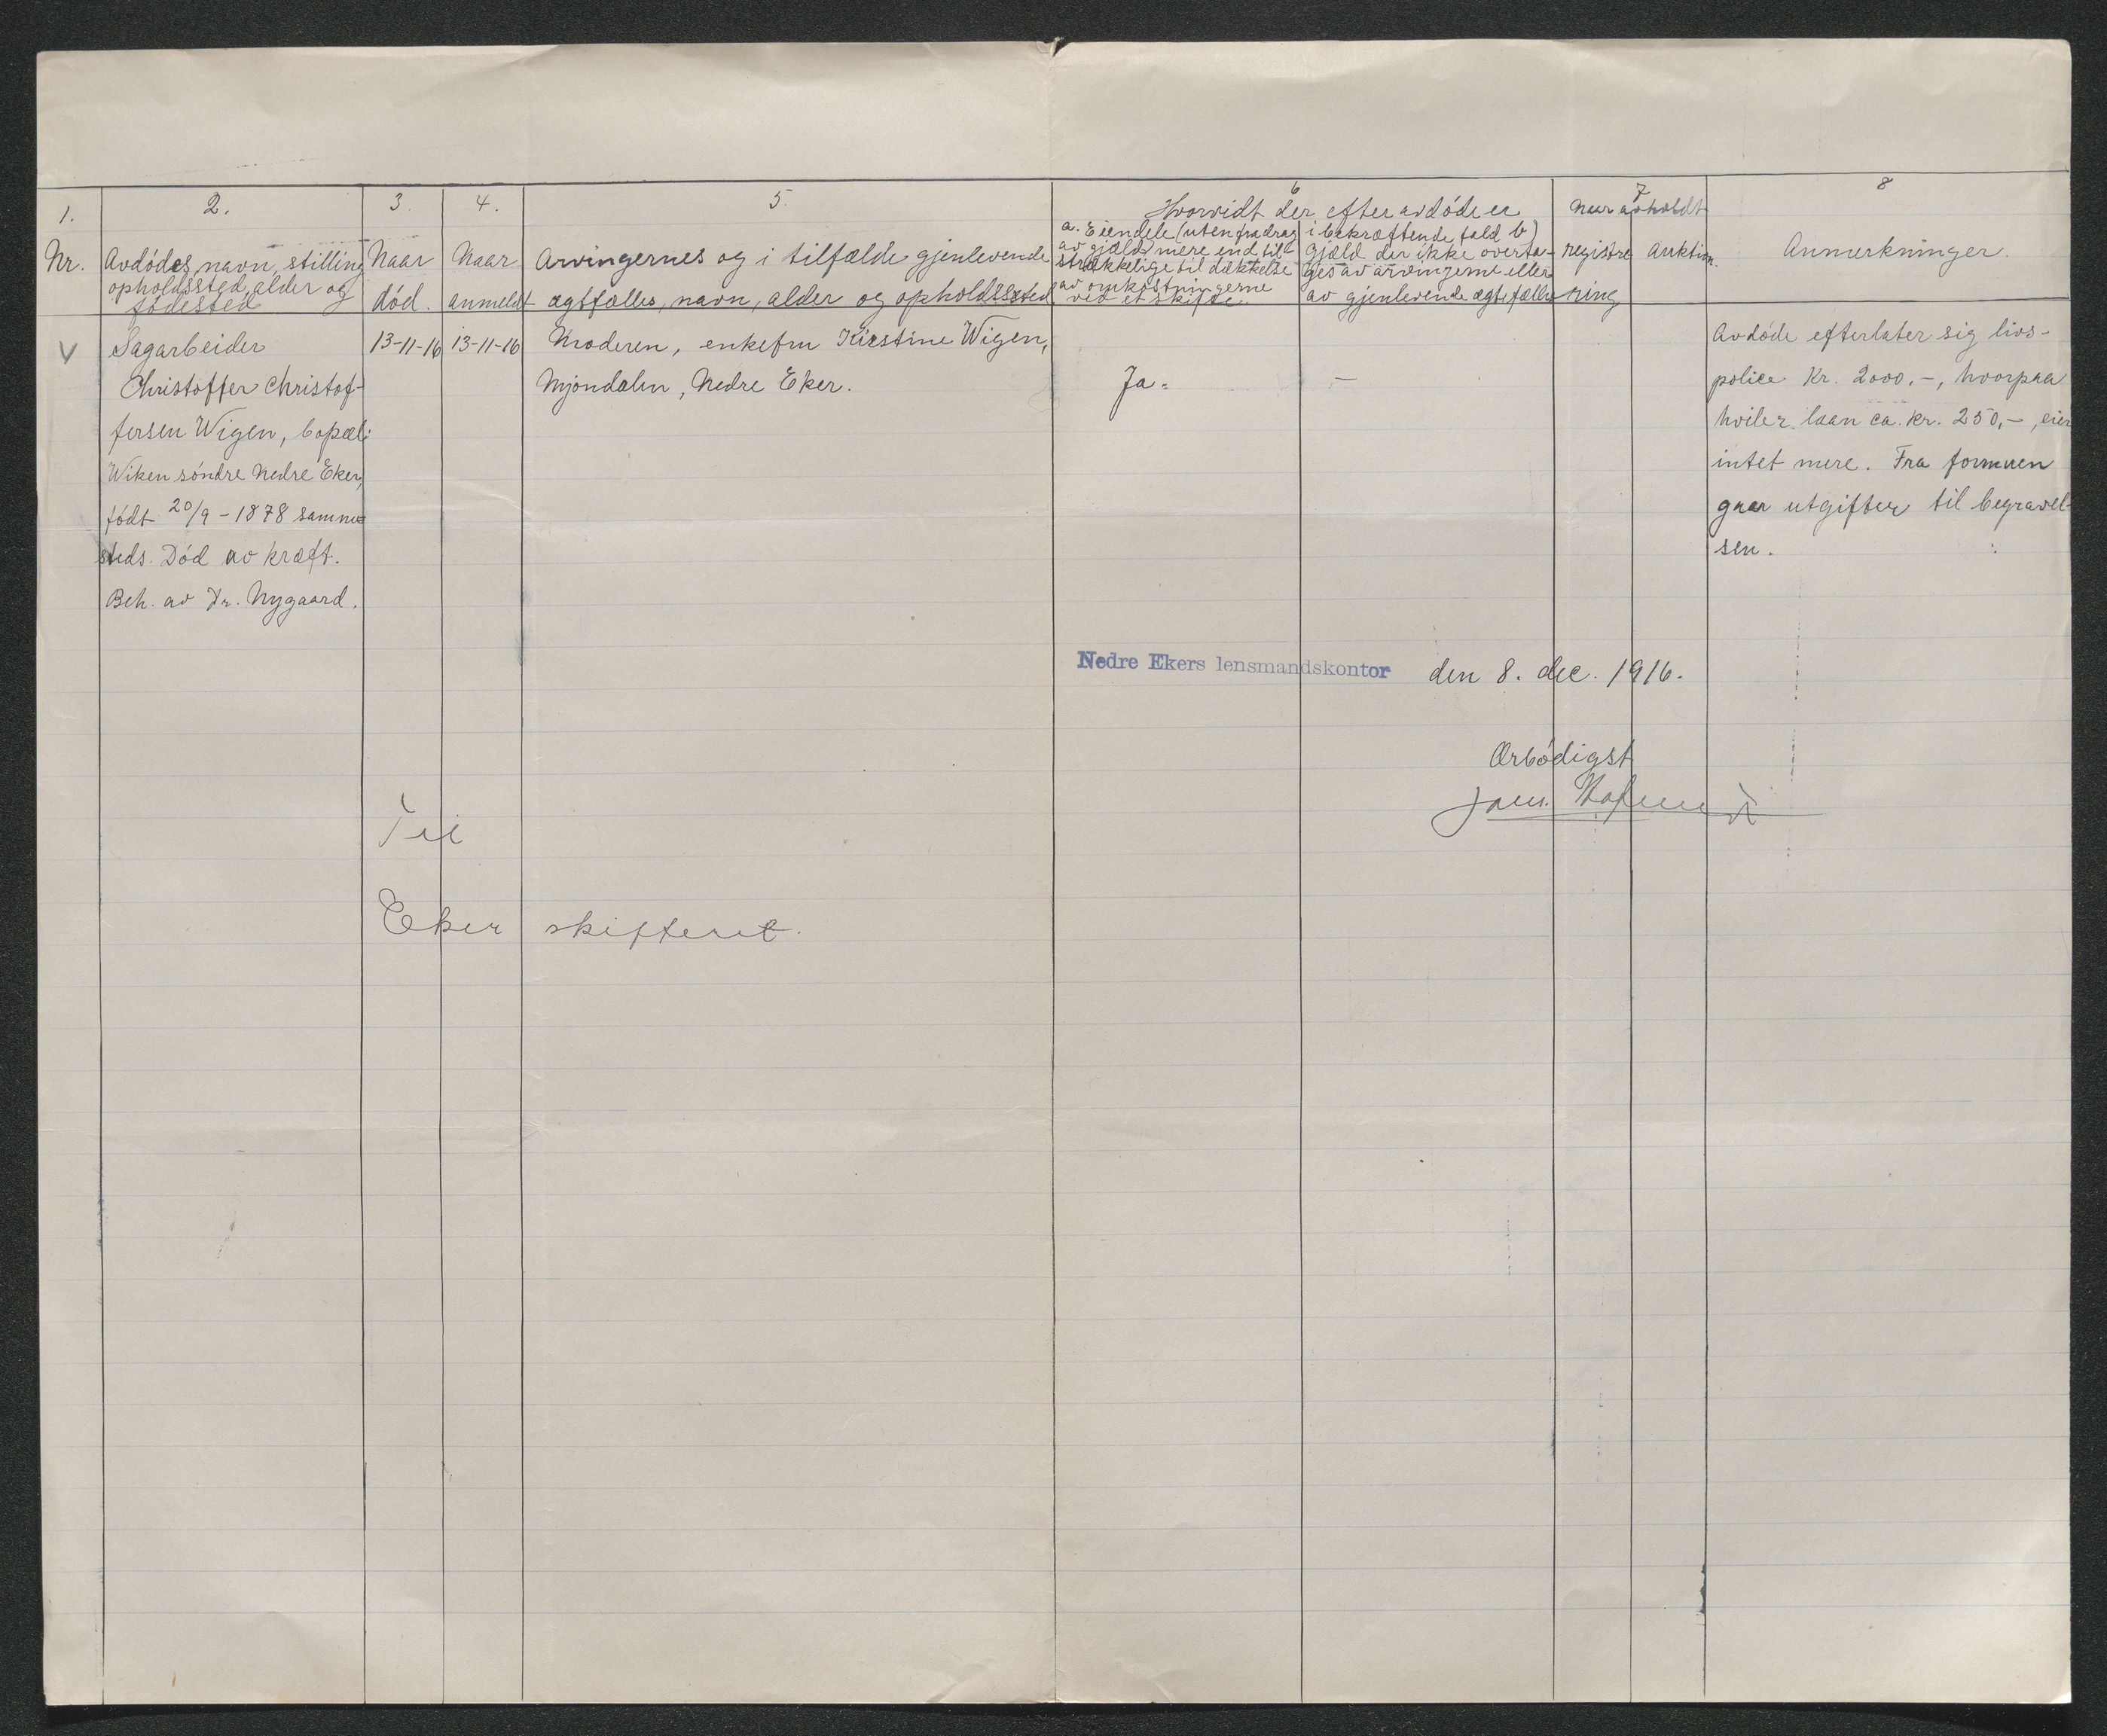 1.
Nr.
2.
Avdødes navn, stilling
opholdssted, alder og
fødested
3.
Naar
død.
4.
Naar
anmeldt
5.
Arvingernes og i tilfælde gjenlevende
egtfælles, navn, alder og opholdssted
6
Hvorvidt der efter avdøde er
a. Eiendele (uten fradrag
av gjæld) mere end til-
strækkelige til dækkelse
av omkostningerne
ved et skifte.
i bekræftende fald b)
Gjæld der ikke overta-
ges av arvingerne eller
av gjenlevende egtefælle
7
Naar avholdt
registre
ring
auktion.
8
Anmerkninger.
V
Sagarbeider
Christoffer Christof-
fersen Wigen, bopæl:
Wiken søndre Nedre Eker,
født 20/9 - 1878 samme-
steds. Død av kræft.
Beh. av Dr. Nygaard.
13-11-16
13-11-16
Moderen, enkefru Kirstine Wigen,
Mjøndalen, Nedre Eker.
Ja.
—
Avdøde efterlater sig livs-
police Kr. 2000.-, hvorpaa
hviler laan ca. kr. 250,-, eier
intet mere. Fra formuen
gaar utgifter til begravel-
sen.
Nedre Ekers lensmandskontor den 8. dec. 1916.
Ærbødigst
Til
Eker skifteret.